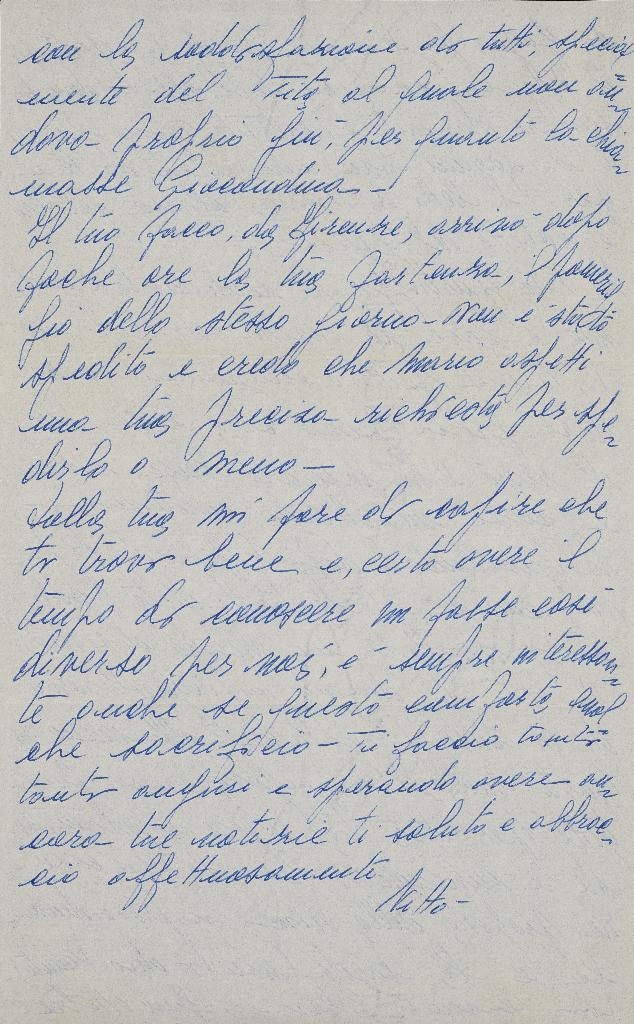 con la soddisfazione di tutti, special
mente del Tito al quale non an=
dava proprio giù, per quanto la chia=
masse Giocondina –
Il tuo pacco, da Firenze, arrivò dopo
poche ore la tua partenza, il pomerig
gio dello stesso giorno – Non è stato
spedito e credo che Mario aspetti
una tua precisa richiesta per spe=
dirlo o meno –
Dalla tua mi pare di capire che
ti trovi bene e, certo avere il
tempo di conoscere un paese così
diverso per noi, è sempre interessan=
te anche se questo comporta qual
che sacrificio – Ti faccio tanti
tanti auguri e sperando avere an=
cora tue notizie ti saluto e abbrac=
cio affettuosamente
Vitto –